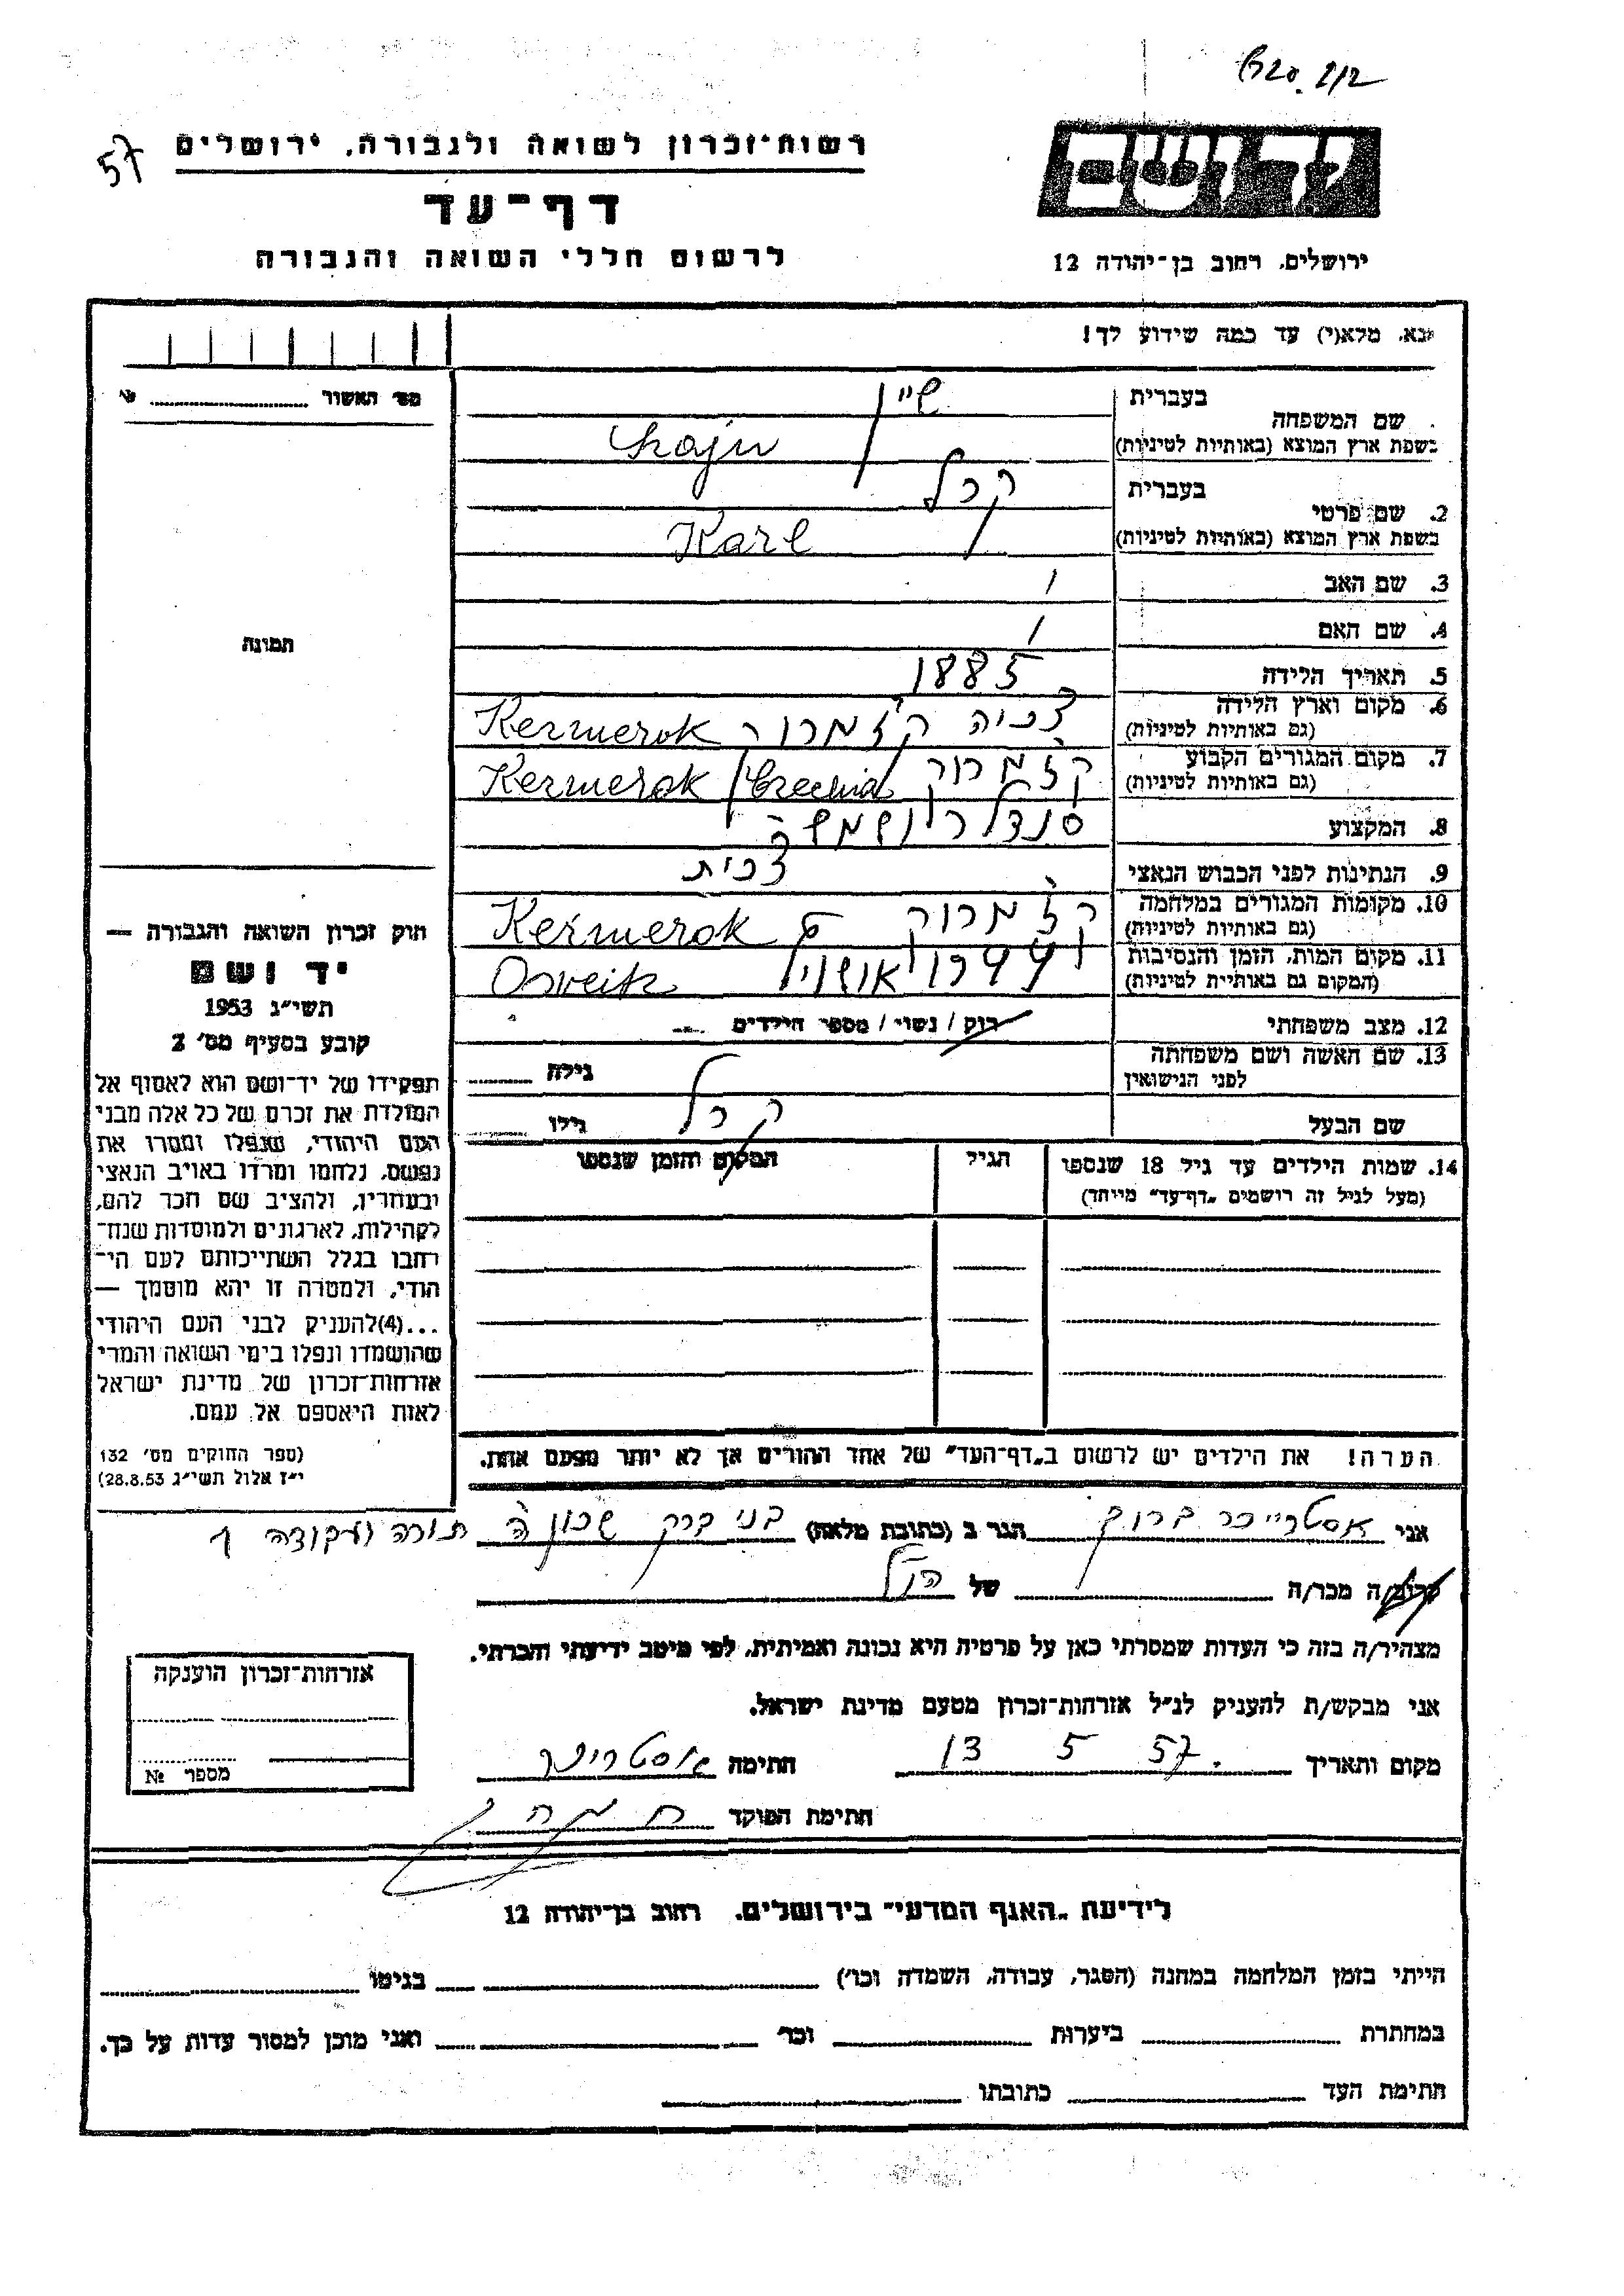 57
רשות־זכרון לשואה ולגבורה, ירושלים
דף־עד
לרשום חללי השואה והגבורה
ירושלים, רחוב בן־יהודה 12
נא, מלא(י) עד כמה שידוע לך!
מס׳ האשור
שם המשפחה
בעברית
שיין
בשפת ארץ המוצא (באותיות לטיניות)
2. שם פרטי
בעברית
קרל
בשפת ארץ המוצא (באותיות לטיניות)
Karl
3. שם האב /
4. שם האם /
תמונה
5. תאריך הלידה 1885
6. מקום וארץ הלידה
(גם באותיות לטיניות)
צכיה קזמרוק Kezmerok
7. מקום המגורים הקבוע
(גם באותיות לטיניות)
קזמרוק Kezmerok / Czechia
8. המקצוע סנדלר
9. הנתינות לפני הכבוש הנאצי צכית
10. מקומות המגורים במלחמה
(גם באותיות לטיניות)
קזמרוק Kezmerok
11. מקום המות, הזמן והנסיבות
(המקום גם באותיית לטיניות)
1944 Osveitz
12. מצב משפחתי רוק / נשוי / מספר הילדים
13. שם האשה ושם משפחתה
לפני הנישואין
גילה
שם הבעל קרל גילו
14. שמות הילדים עד גיל 18 שנספו
(מעל לגיל זה רושמים „דף־עד״ מייחד)
הגיל
המקום והזמן שנספו
הערה! את הילדים יש לרשום ב„דף־העד״ של אחד ההורים אך לא יותר מפעם אחת.
חוק זכרון השואה והגבורה —
יד ושם
תשי״ג 1953
קובע בסעיף מס׳ 2
תפקידו של יד־ושם הוא לאסוף אל
המולדת את זכרם של כל אלה מבני
העם היהודי, שנפלו ומסרו את
נפשם, נלחמו ומרדו באויב הנאצי
ובעוזריו, ולהציב שם וזכר להם,
לקהילות, לארגונים ולמוסדות שנח־
רבו בגלל השתייכותם לעם הי־
הודי, ולמטרה זו יהא מוסמך —
...(4)להעניק לבני העם היהודי
שהושמדו ונפלו בימי השואה והמרי
אזרחות־זכרון של מדינת ישראל
לאות היאספם אל עמם.
(ספר החוקים מס׳ 132
י״ז אלול תשי״ג 28.8.53)
אני אסטרייכר ברוך הגר ב (כתובת מלאה) בני ברק שכון ה תורה ועבודה
קרוב/ה מכר/ה של הנ״ל
מצהיר/ה בזה כי העדות שמסרתי כאן על פרטיה היא נכונה ואמיתית, לפי מיטב ידיעתי והכרתי.
אני מבקש/ת להעניק לנ״ל אזרחות־זכרון מטעם מדינת ישראל.
מקום ותאריך 13 5 57. חתימה
חתימת הפוקד
אזרחות־זכרון הוענקה
מספר №
לידיעת „האגף המדעי״ בירושלים, רחוב בן־יהודה 12
הייתי בזמן המלחמה במחנה (הסגר, עבודה, השמדה וכו׳) בגיטו
במחתרת ביערות וכו׳ ואני מוכן למסור עדות על כך.
חתימת העד כתובתו